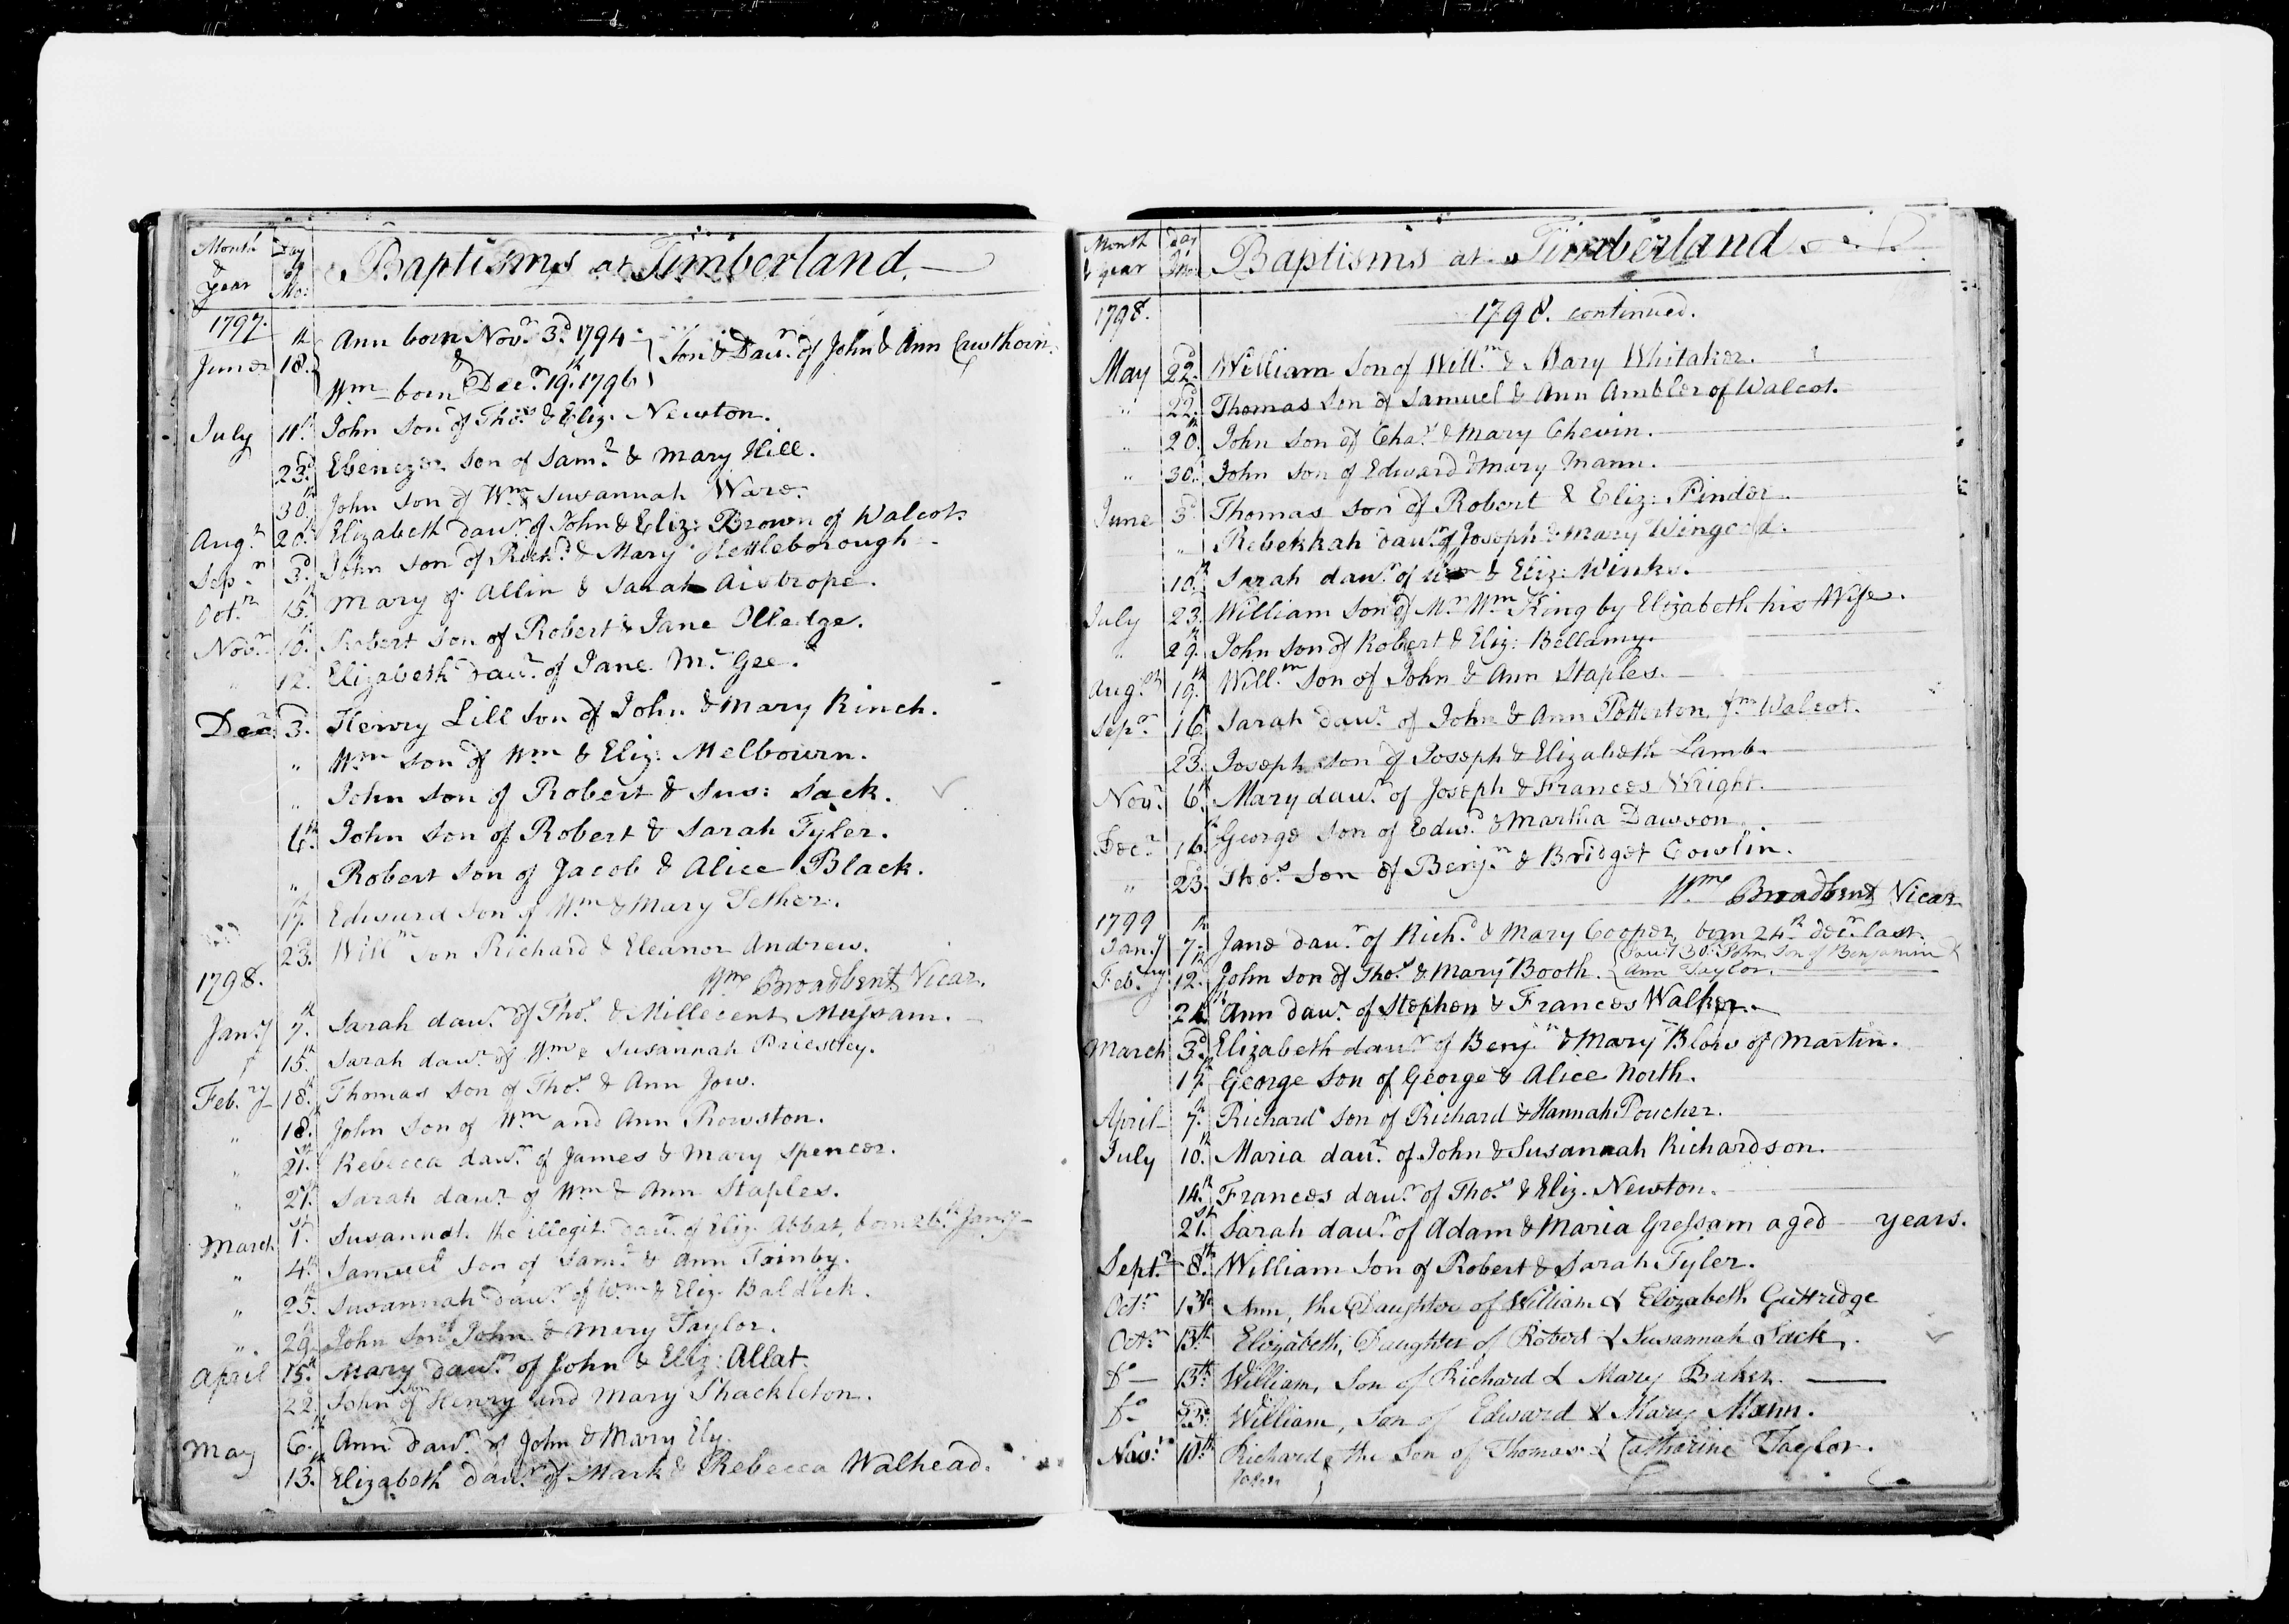 Month & Year Day of Mo: Baptisms at Timberland.
1797.
June 18th Ann born Novr. 3d. 1794 & Son & Daur. of John & Ann Cawthorn.
Wm born Decr. 19th. 1796
July 11th. John Son of Thos. & Eliz. Newton.
23d. Ebenezer Son of Saml. & Mary Hill.
30th. John Son of Wm & Susannah Ware.
Augt. 20th. Elizabeth daur. of John & Eliz: Brown of Walcot.
Sepr. 3d. John Son of Richd. & Mary Kettleborough.
Octr. 15th. Mary of Allin & Sarah Aistrope.
Novr. 10th. Robert Son of Robert & Jane Olledge.
" 12th. Elizabeth daur. of Jane Mc. Gee.
Decr. 3d. Henry Lill Son of John & Mary Kinch.
" Wm Son of Wm & Eliz: Melbourn.
" John Son of Robert & Sus: Sack.
6th. John Son of Robert & Sarah Tyler.
" Robert Son of Jacob & Alice Black.
17th. Edward Son of Wm & Mary Tether.
23d. Willm Son Richard & Eleanor Andrew.
1798. Wm. Broadbent Vicar.
Jany. 7th. Sarah daur. of Thos. & Millecent Mussam.
15th. Sarah daur. of Wm & Susannah Priestley.
Febry. 18th. Thomas Son of Thos. & Ann Jow.
" 18th. John Son of Wm and Ann Rowston.
" 21st. Rebecca daur. of James & Mary Spencer.
" 27th. Sarah daur. of Wm & Ann Staples.
March 1st. Susannah the illegit. daur. of Eliz. Abbat, born 26th. Jany.
" 4th. Samuel Son of Saml. & Ann Toinby.
" 25th. Susannah daur. of Wm & Eliz. Baldick.
" 29th. John Son John & Mary Taylor.
April 15th. Mary daur. of John & Eliz: Allat.
22d. John Son of Henry and Mary Shackleton.
May 6th. Ann daur. of John & Mary Ely.
13th. Elizabeth daur. of Mark & Rebecca Walhead.
Month & year Day Mo: Baptisms at Timberland
1798. 1798. continued.
May 22d. William Son of Willm. & Mary Whitaker.
" 22d. Thomas Son of Samuel & Ann Ambler of Walcot.
" 20th. John Son of Chas. & Mary Chevin.
" 30. John Son of Edward & Mary Mann.
June 3d. Thomas Son of Robert & Eliz: Pinder.
" Rebekkah daur. of Joseph & Mary Wingood.
10th. Sarah daur. of Wm & Eliz: Winks.
July 23. William Son of Mr. Wm King by Elizabeth his Wife.
" 29th. John Son of Robert & Eliz: Bellamy.
Augst. 19th. Willm. Son of John & Ann Staples.
Sepr. 16th. Sarah daur. of John & Ann Potterton fm Walcot.
23. Joseph Son of Joseph & Elizabeth Lamb.
Novr. 6th. Mary daur. of Joseph & Frances Wright.
Decr. 16th. George Son of Edwd. & Martha Dawson.
" 23d. Thos. Son of Benjn. & Bridget Cowlin.
Wm. Broadbent Vicar
1799
Jany. 7th. Jane daur. of Richd. & Mary Cooper, born 24th. Decr. last.
Febry. 12th. John Son of Thos. & Mary Booth. Jany. 30th. John Son of Benjamin & Ann Taylor.
24th Ann daur. of Stephen & Frances Walker.
March 3d. Elizabeth daur. of Benjn. & Mary Blow of Martin.
17th. George Son of George & Alice North.
April 7th. Richard Son of Richard & Hannah Poucher.
July 10th. Maria daur. of John & Susannah Richardson.
14th. Frances daur. of Thos. & Eliz. Newton.
21st. Sarah daur. of Adam & Maria Gressam aged years.
Septr. 8th. William Son of Robert & Sarah Tyler.
Octr. 13th Ann, the Daughter of William & Elizabeth Guttridge
Octr. 13th. Elizabeth, Daughter of Robert & Susannah Sack.
Do 13th. William, Son of Richard & Mary Baker.
Do William, Son of Edward & Mary Mann.
Novr. 10th. Richard, the Son of Thomas & Catharine Taylor.